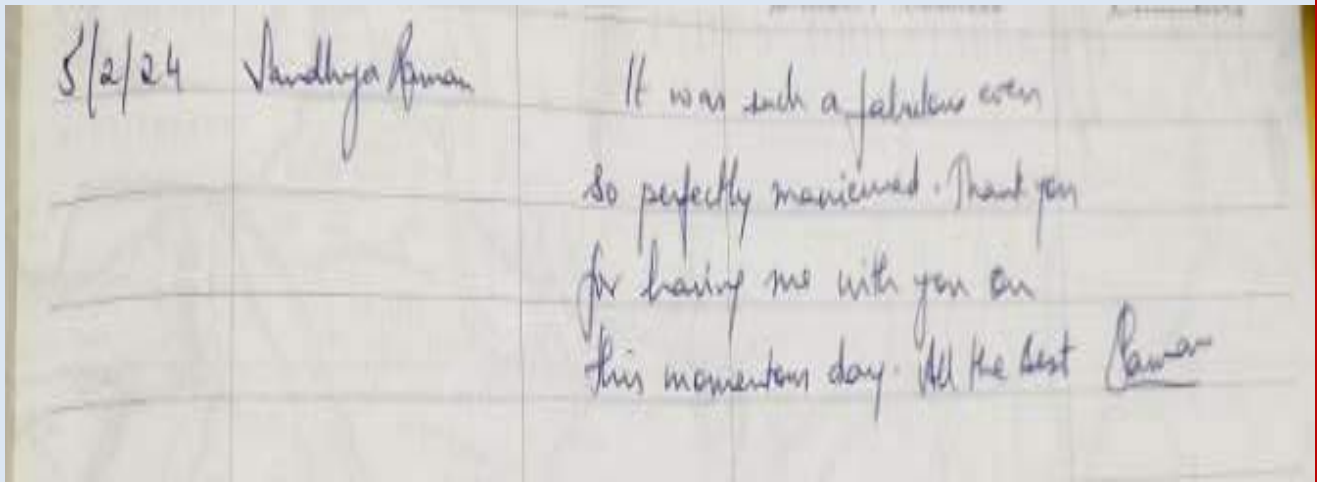 5/2/24 Sandhya Raman It was such a fabulous even
so perfectly manicured. Thank you
for having me with you on
this momentous day. All the best Raman